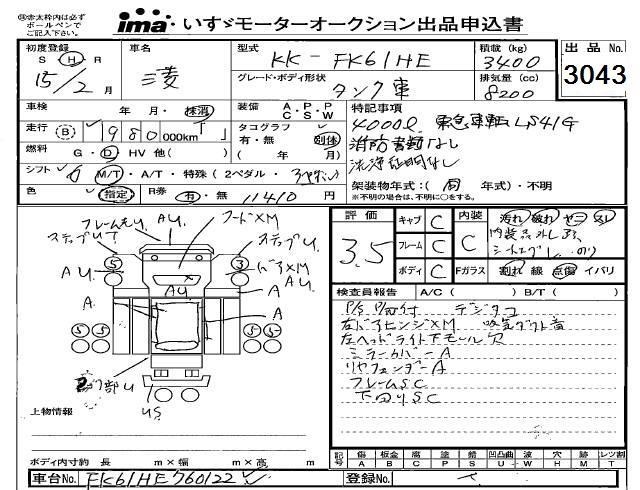 ㊟赤太枠内は必ず
ボールペンで
ご記入下さい。
ima いすゞモーターオークション出品申込書
初度登録 S H R 15/2 月
車名 三菱
型式 KK-FK61HE
積載 (kg) 3400
出品 No. 3043
グレード・ボディ形状 タンク車
排気量 (cc) 8200
車検 年 月・抹消
装備 A.P.P C.S.W
特記事項
走行 B 980 000km「 」
タコグラフ 有・無 別体
4000ℓ 東急車輌 LS41G
消防書類なし
燃料 G・D HV 他( )
( 年 月)
洗浄証明なし
シフト 6 M/T・A/T・特殊(2ペダル・ )
架装物年式:( 同 年式)・不明
※不明の場合は、不明に○をする。
色 指定 R券 有・無 11410 円
フレームモリ AU フードXM
ステップUT ステップU
5 3
AU バイXM
AU
AU A
A A
5 5
リフ部U
US
評価 3.5
キャブ C
フレーム C
ボディ C
内装 C
Fガラス
汚れ 破れ ヤニ スレ
割れ 線 点傷 イバリ
検査員報告 A/C( ) B/T( )
P/S P/W付 デジタコ
右バイヒンジXM 吸気ダクト音
左ヘッドライト下モール欠
ミラーカバーA
リヤフェンダーA
フレームSC
下回りSC
上物情報
ボディ内寸約 長 m×幅 m×高 m
記号 傷 A 板金 B 腐 C 塗 P 錆 S 凹凸曲 U 波 W 穴 H 跡 M レンズ割 T
車台No. FK61HE760122
登録No.